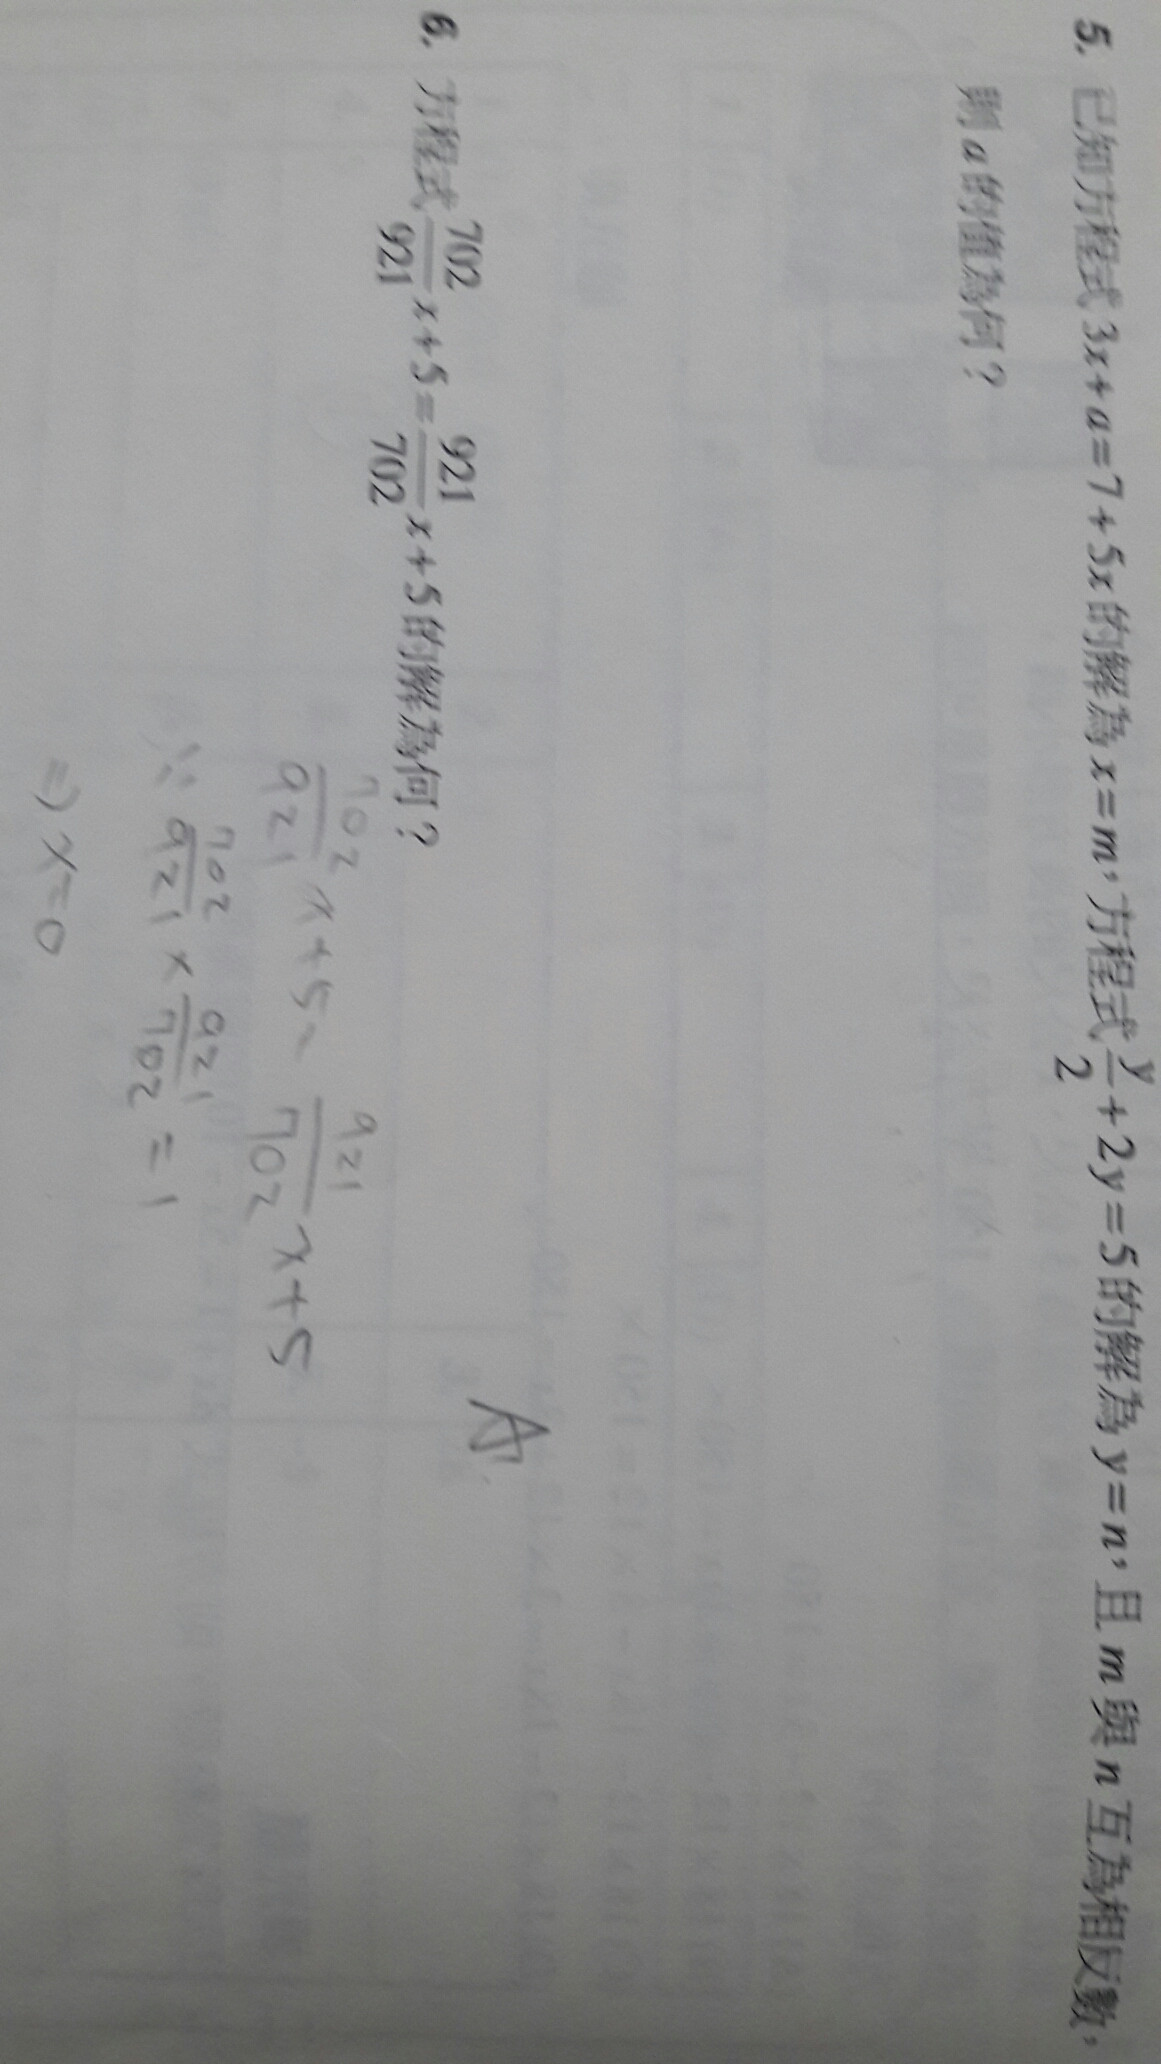 5. 已知方程式 3x+a=7+5x 的解為 x=m，方程式 y/2+2y=5 的解為 y=n，且 m 與 n 互為相反數，
則 a 的值為何？
6. 方程式 702/921 x+5= 921/702 x+5 的解為何？
A
702/921 x+5- 921/702 x+5
∵ 702/921 × 921/702 = 1
⇒ x=0